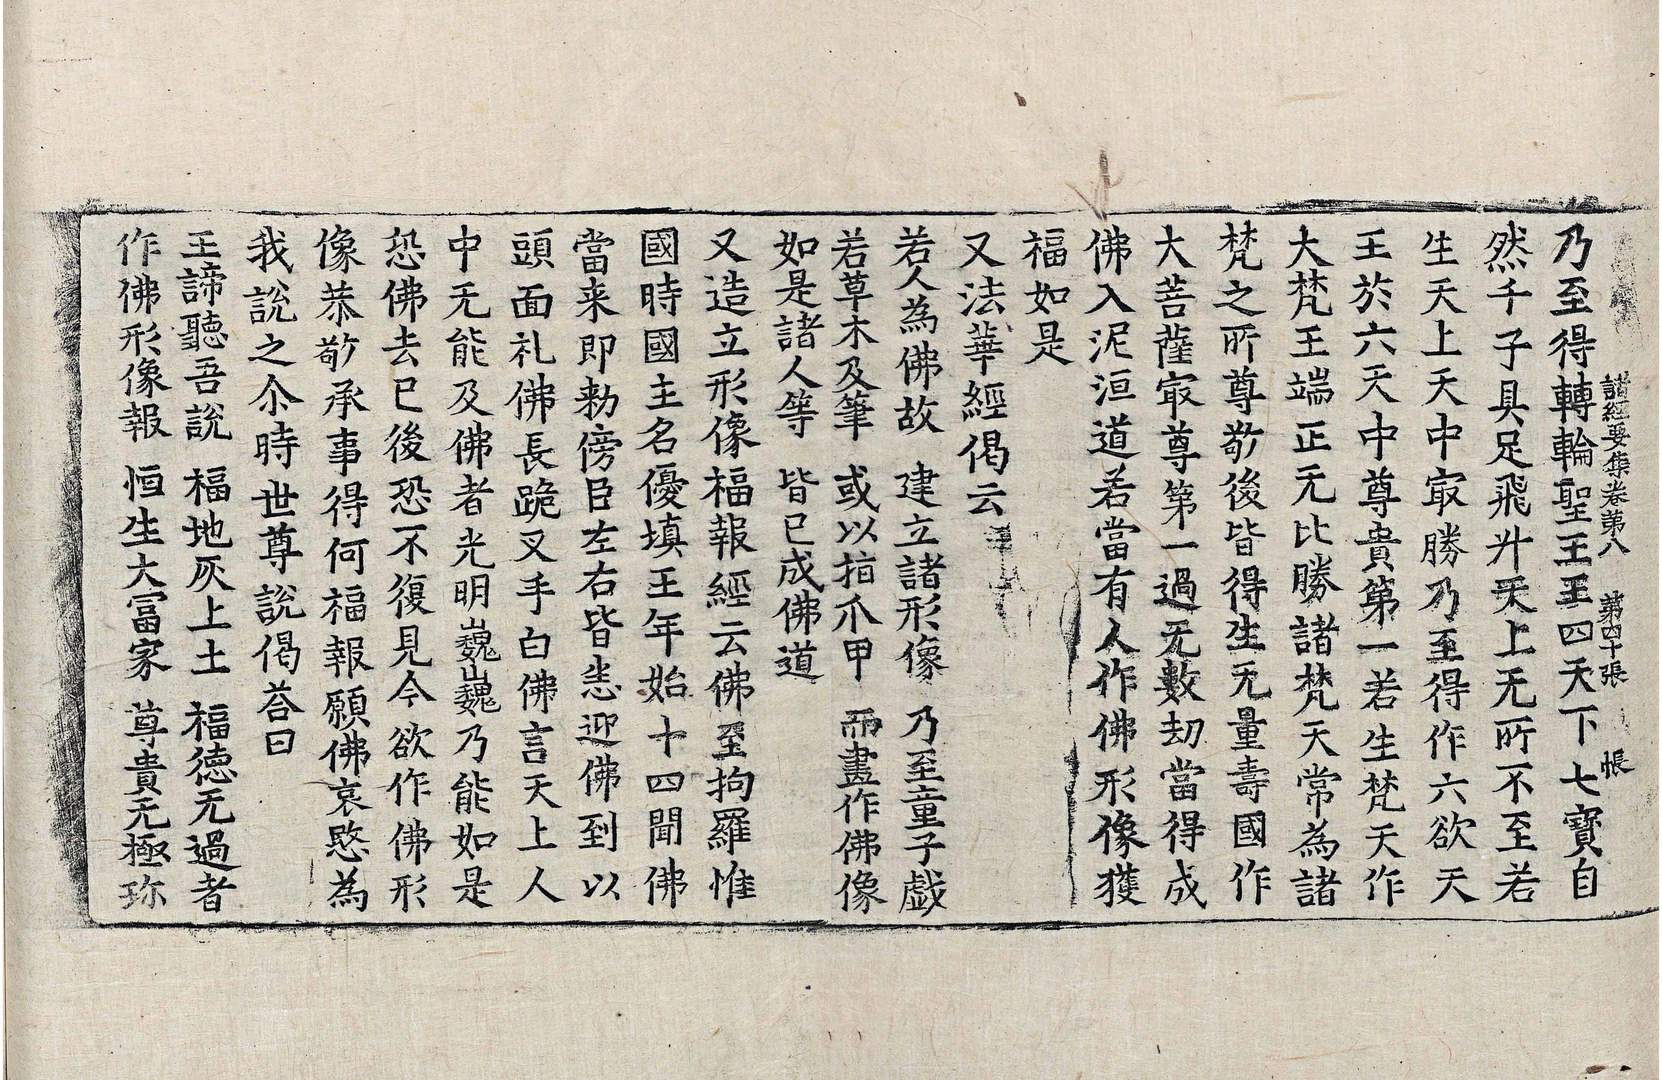 諸經要集卷第八 第四十張 悵
乃至得轉輪聖王王四天下七寶自
然千子具足飛升天上无所不至若
生天上天中冣勝乃至得作六欲天
王於六天中尊貴第一若生梵天作
大梵王端正无比勝諸梵天常為諸
梵之所尊敬後皆得生无量壽國作
大菩薩冣尊第一過无數劫當得成
佛入泥洹道若當有人作佛形像獲
福如是
又法華經偈云
若人為佛故 建立諸形像 乃至童子戲
若草木及筆 或以指爪甲 而畫作佛像
如是諸人等 皆已成佛道
又造立形像福報經云佛至拘羅惟
國時國主名優填王年始十四聞佛
當来即勅傍臣左右皆悉迎佛到以
頭面礼佛長跪叉手白佛言天上人
中无能及佛者光明巍巍乃能如是
恐佛去已後恐不復見今欲作佛形
像恭敬承事得何福報願佛哀愍為
我說之尒時世尊說偈荅曰
王諦聽吾說 福地灰上土 福徳无過者
作佛形像報 恒生大冨家 尊貴无極珎